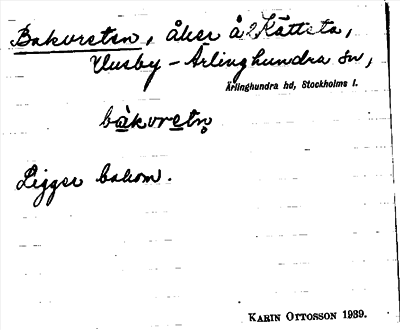 Bakvreten, åker å 2 Kättsta,
Husby - Ärlinghundra sn,
Ärlinghundra hd, Stockholms l.
bàkvretn̥
Ligger bakom.
KARIN OTTOSSON 1939.